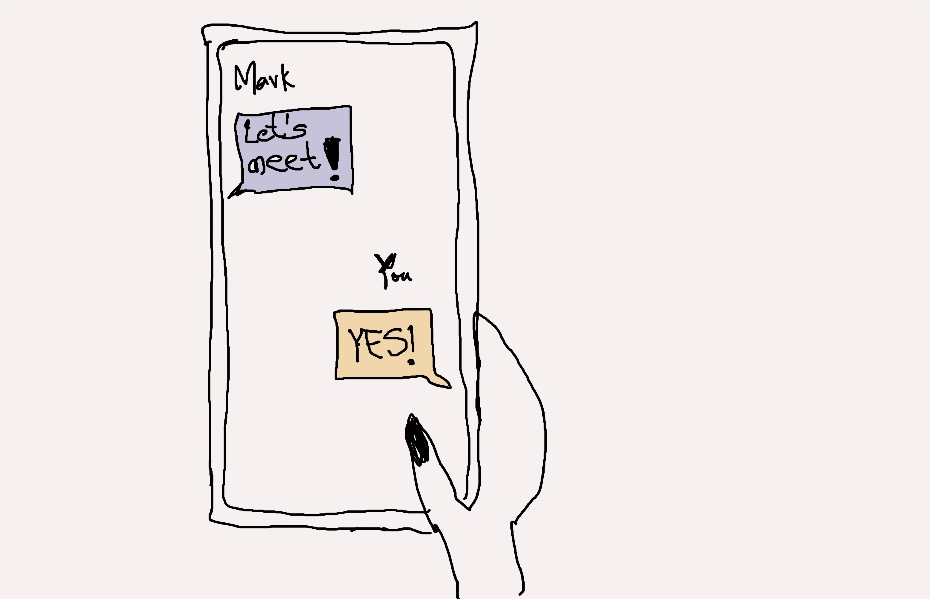 Mark
Let's
meet!
You
YES!